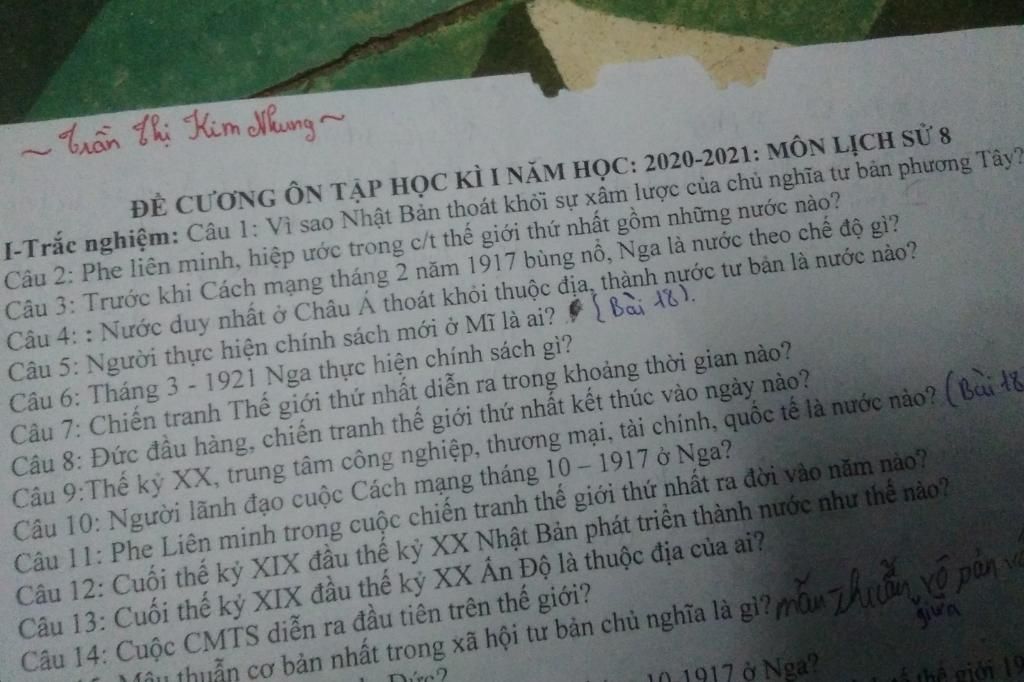 ~ Trần Thị Kim Nhung ~
ĐỀ CƯƠNG ÔN TẬP HỌC KÌ I NĂM HỌC: 2020-2021: MÔN LỊCH SỬ 8
I-Trắc nghiệm: Câu 1: Vì sao Nhật Bản thoát khỏi sự xâm lược của chủ nghĩa tư bản phương Tây?
Câu 2: Phe liên minh, hiệp ước trong c/t thế giới thứ nhất gồm những nước nào?
Câu 3: Trước khi Cách mạng tháng 2 năm 1917 bùng nổ, Nga là nước theo chế độ gì?
Câu 4: : Nước duy nhất ở Châu Á thoát khỏi thuộc địa, thành nước tư bản là nước nào?
Câu 5: Người thực hiện chính sách mới ở Mĩ là ai? (Bài 18).
Câu 6: Tháng 3 - 1921 Nga thực hiện chính sách gì?
Câu 7: Chiến tranh Thế giới thứ nhất diễn ra trong khoảng thời gian nào?
Câu 8: Đức đầu hàng, chiến tranh thế giới thứ nhất kết thúc vào ngày nào?
Câu 9:Thế kỷ XX, trung tâm công nghiệp, thương mại, tài chính, quốc tế là nước nào? (Bài 18
Câu 10: Người lãnh đạo cuộc Cách mạng tháng 10 – 1917 ở Nga?
Câu 11: Phe Liên minh trong cuộc chiến tranh thế giới thứ nhất ra đời vào năm nào?
Câu 12: Cuối thế kỷ XIX đầu thế kỷ XX Nhật Bản phát triển thành nước như thế nào?
Câu 13: Cuối thế kỷ XIX đầu thế kỷ XX Ấn Độ là thuộc địa của ai?
Câu 14: Cuộc CMTS diễn ra đầu tiên trên thế giới?
Mâu thuẫn cơ bản nhất trong xã hội tư bản chủ nghĩa là gì? mẫu thuẫn vô sản
giữa
Đức?
10 1917 ở Nga?
thế giới